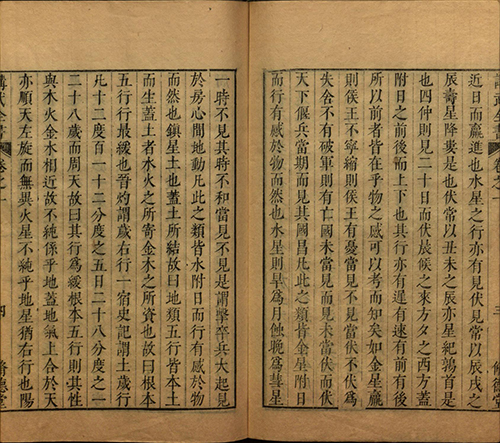 近日而贏進也水星之行亦有見伏見以辰戌之
辰壽星降婁是也伏常以丑未之辰亦星紀鶉首是
也四仲則見二十日而伏晨候之東方夕之西方蓋
附日之前後而上下也其行亦有遲有速有前有後
所以前者皆在乎物之感可以考而知矣如金星贏
則侯王不寧縮則侯王有憂當見不見當伏不伏爲
失舍不有破軍則有亡國未當見而見未當伏而伏
天下偃兵當期而見其國昌凡此之類皆金星附日
而行有感於物而然也水星則早爲月蝕晚爲彗星
一時不見其時不和當見不見是謂擊卒兵大起見
於房心間地動凡此之類皆水附日而行有感於物
而然也鎮星土也蓋土所結故曰地類五行皆本土
而生蓋土者水火之所寄金木之所資也故曰根本
五行行最緩也晉灼謂歲右行一宿史記謂土歲行
十二度百一十二分度之五日二十八分度之一
二十八歲而周天故曰其行爲緩根本五行則其性
與木火金水相近故不純係乎地蓋地氣上合於天
亦順天左旋而無異火星不純乎地星猶右行也陽
卷之一
四